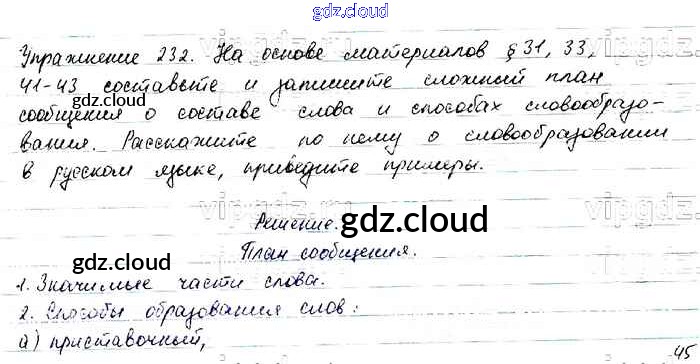 gdz.cloud
Упражнение 232. На основе материалов § 31, 33,
41-43 составьте и запишите сложный план
сообщения о составе слова и способах словообразо-
вания. Расскажите по нему о словообразовании
в русском языке, приведите примеры.
gdz.cloud
gdz.cloud
Решение.
gdz.cloud
План сообщения.
gdz.cloud
1. Значимые части слова.
2. Способы образования слов:
а) приставочный,
gdz.cloud
45